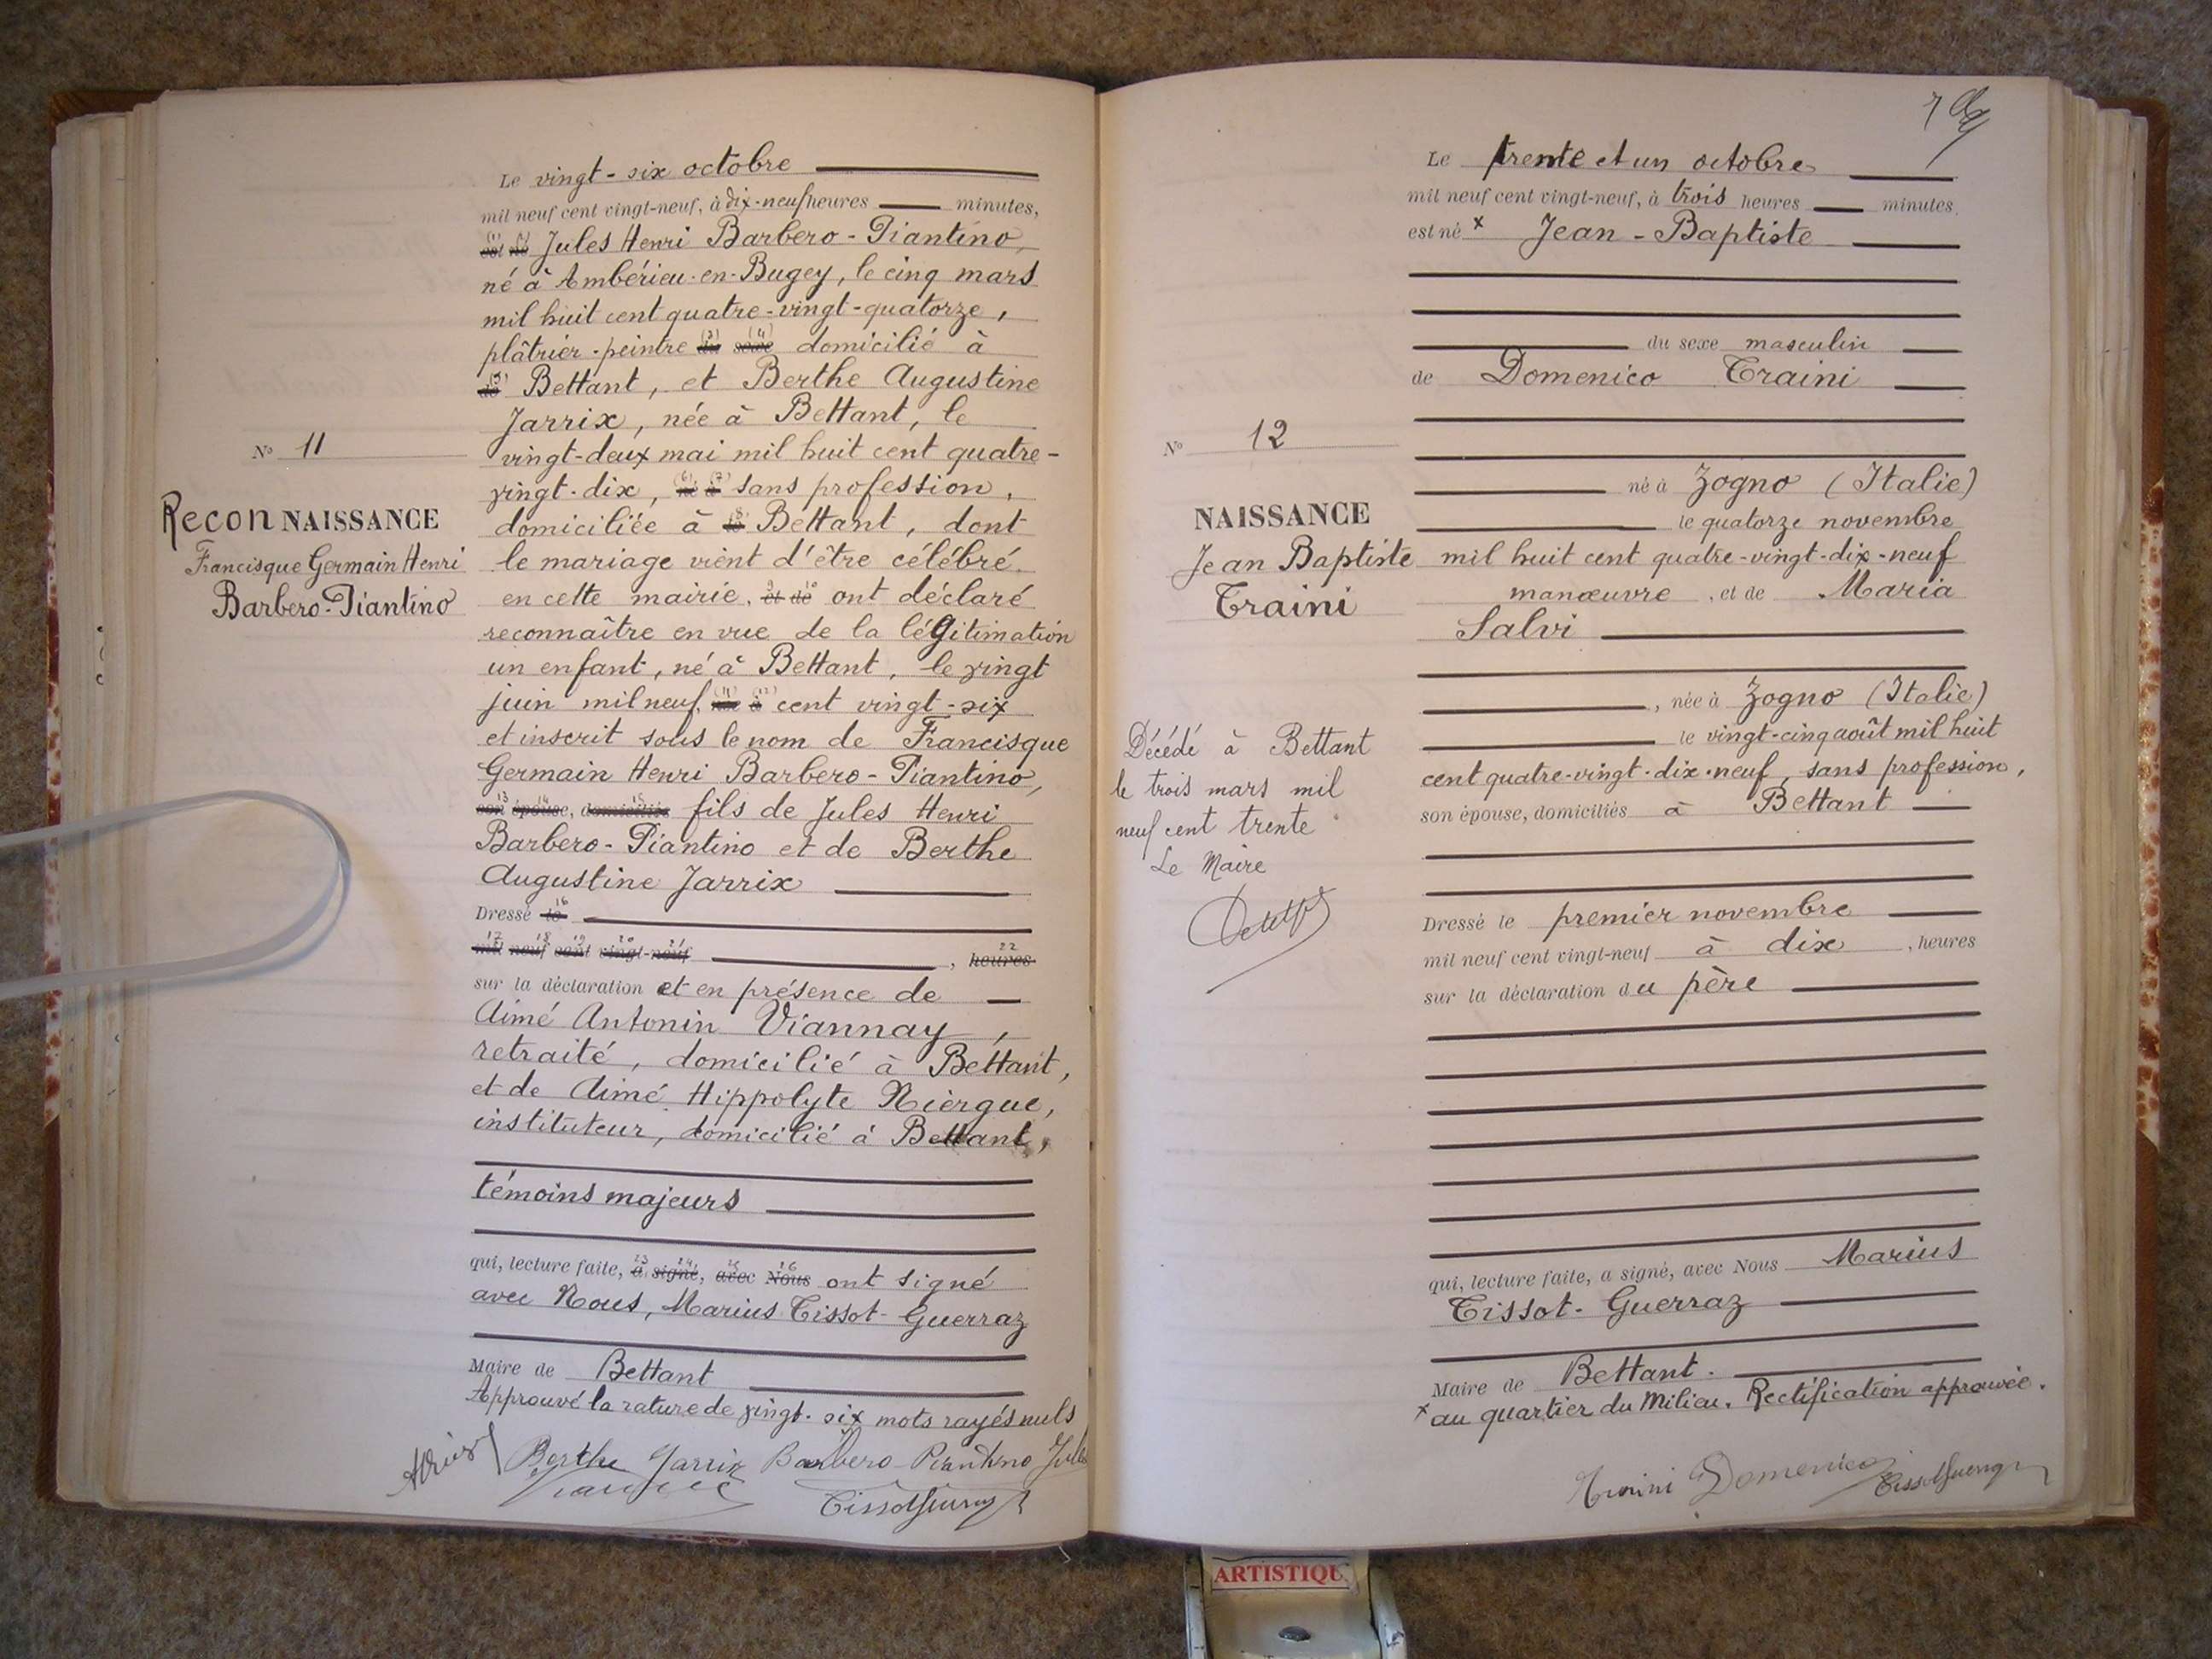 Le vingt-six octobre
mil neuf cent vingt-neuf, à dix-neuf heures minutes,
est né Jules Henri Barbero-Piantino,
né à Ambérieu-en-Bugey, le cinq mars
mil huit cent quatre-vingt-quatorze,
plâtrier-peintre du sexe domicilié à
de Bettant, et Berthe Augustine
Jarrix, née à Bettant, le
vingt-deux mai mil huit cent quatre-
vingt-dix, né à sans profession,
domiciliée à le Bettant, dont
le mariage vient d'être célébré
en cette mairie, et de ont déclaré
reconnaître en vue de la légitimation
un enfant, né à Bettant, le vingt
juin mil neuf, née à cent vingt-six
et inscrit sous le nom de Francisque
Germain Henri Barbero-Piantino,
son épouse, domiciliés fils de Jules Henri
Barbero-Piantino et de Berthe
Augustine Jarrix
Dressé le
mil neuf cent vingt-neuf, heures
sur la déclaration et en présence de
Aimé Antonin Viannay,
retraité, domicilié à Bettant,
et de Aimé Hippolyte Nièrgue,
instituteur, domicilié à Bettant,
témoins majeurs
qui, lecture faite, a signé, avec Nous ont signé
avec Nous, Marius Tissot-Guerraz
Maire de Bettant
Approuvé la rature de vingt-six mots rayés nuls
Berthe Jarrix Barbero-Piantino Jules
TissotGuerraz
N° 11
ReconNAISSANCE
Francisque Germain Henri
Barbero-Piantino
Le trente et un octobre
mil neuf cent vingt-neuf, à trois heures minutes,
est né x Jean-Baptiste
du sexe masculin
de Domenico Traini
né à Zogno (Italie)
le quatorze novembre
mil huit cent quatre-vingt-dix-neuf
manœuvre, et de Maria
Salvi
, née à Zogno (Italie)
le vingt-cinq août mil huit
cent quatre-vingt-dix-neuf, sans profession,
son épouse, domiciliés à Bettant
Dressé le premier novembre
mil neuf cent vingt-neuf à dix, heures
sur la déclaration du père
qui, lecture faite, a signé, avec Nous Marius
Tissot-Guerraz
Maire de Bettant.
x au quartier du Milieu. Rectification approuvée.
Traini Domenico TissotGuerraz
N° 12
NAISSANCE
Jean Baptiste
Traini
Décédé à Bettant
le trois mars mil
neuf cent trente
Le Maire
ARTISTIQU